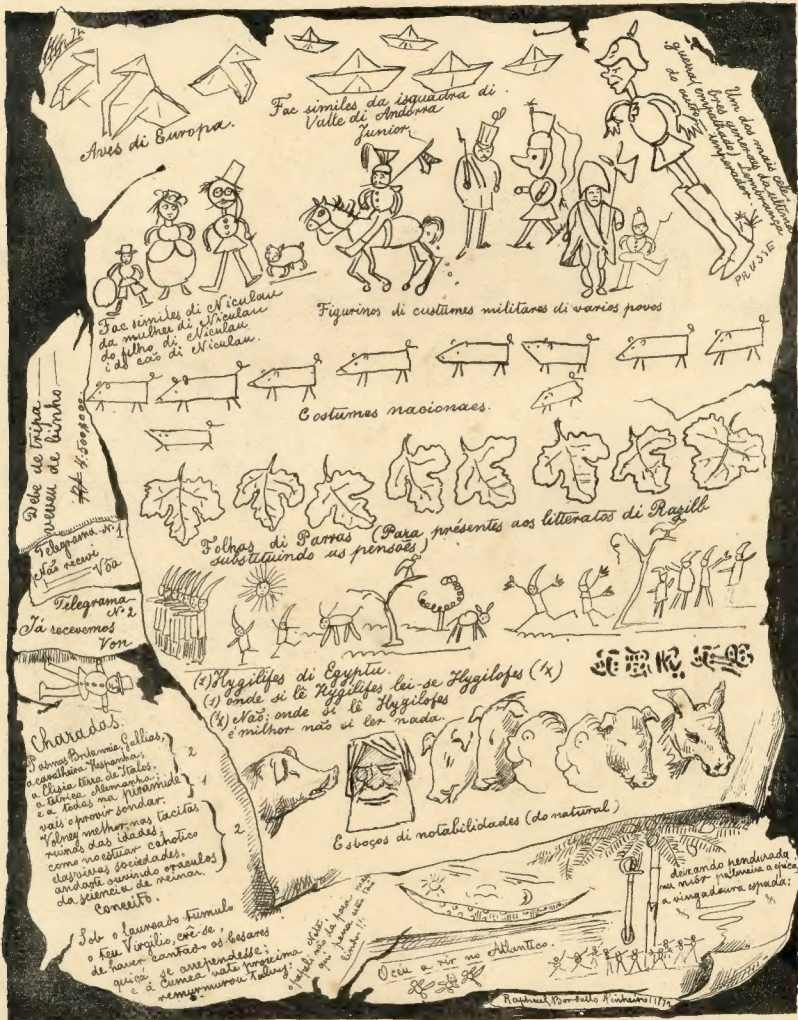 Aves di Europa.
Fac similes da isquadra di
Valle di Andorra
Junior.
Um dos mais cele-
bres generaes da ultima
guerra (empalhado) Lembrança
do outo imperador.
PRUSSE
Fac similes di Niculau
da mulher di Niculau
do filho di Niculau
i do cão di Niculau.
Figurinos di custumes militares di varios povos
Costumes nacionaes.
Debe de tripa
veveu de binho
4:500$000
Folhas di Parras (Para présentes aos litteratos di Razilb
substituindo as pensões)
Telegrama Nº 1
Não recevi
Vôa
Telegrama
Nº 2
Já recevemos
Von
(1) Hygilifes di Egyptu.
(1) onde si lê Hygilifes lei-se Hygilofes (1x)
(1x) Não; onde si lê Hygilofes
é milhor não si ler nada.
Charadas.
Pasmas Britannia, Gallias,
a cavalheira Hespanha,
a Elisia, terra de Italos,
a tétrica Alemanha;
e a todas na piramide
vais o provir sondar.
2
1
Volney melhor, nas tacitas
ruinas das idades,
como no estuar cahotico
das vivas sociedades,
andaste ouvindo oraculos
da sciencia de reinar.
2
Conceito.
Sob o laureado tumulo
o teu Virgilio, crê-se,
de haver cantado os Cesares
quiçá se arrependesse;
e á Cumea vate proxima
remurmurou talvez:
Esboços di notabilidades (do natural)
Nota,
o papeli não da para mais
qui para
linho!!
O céu a rir no Atlantico.
deixando pendurada
na mór palmeira a
a vingadoura espada;
Raphael Bordallo Pinheiro 1872